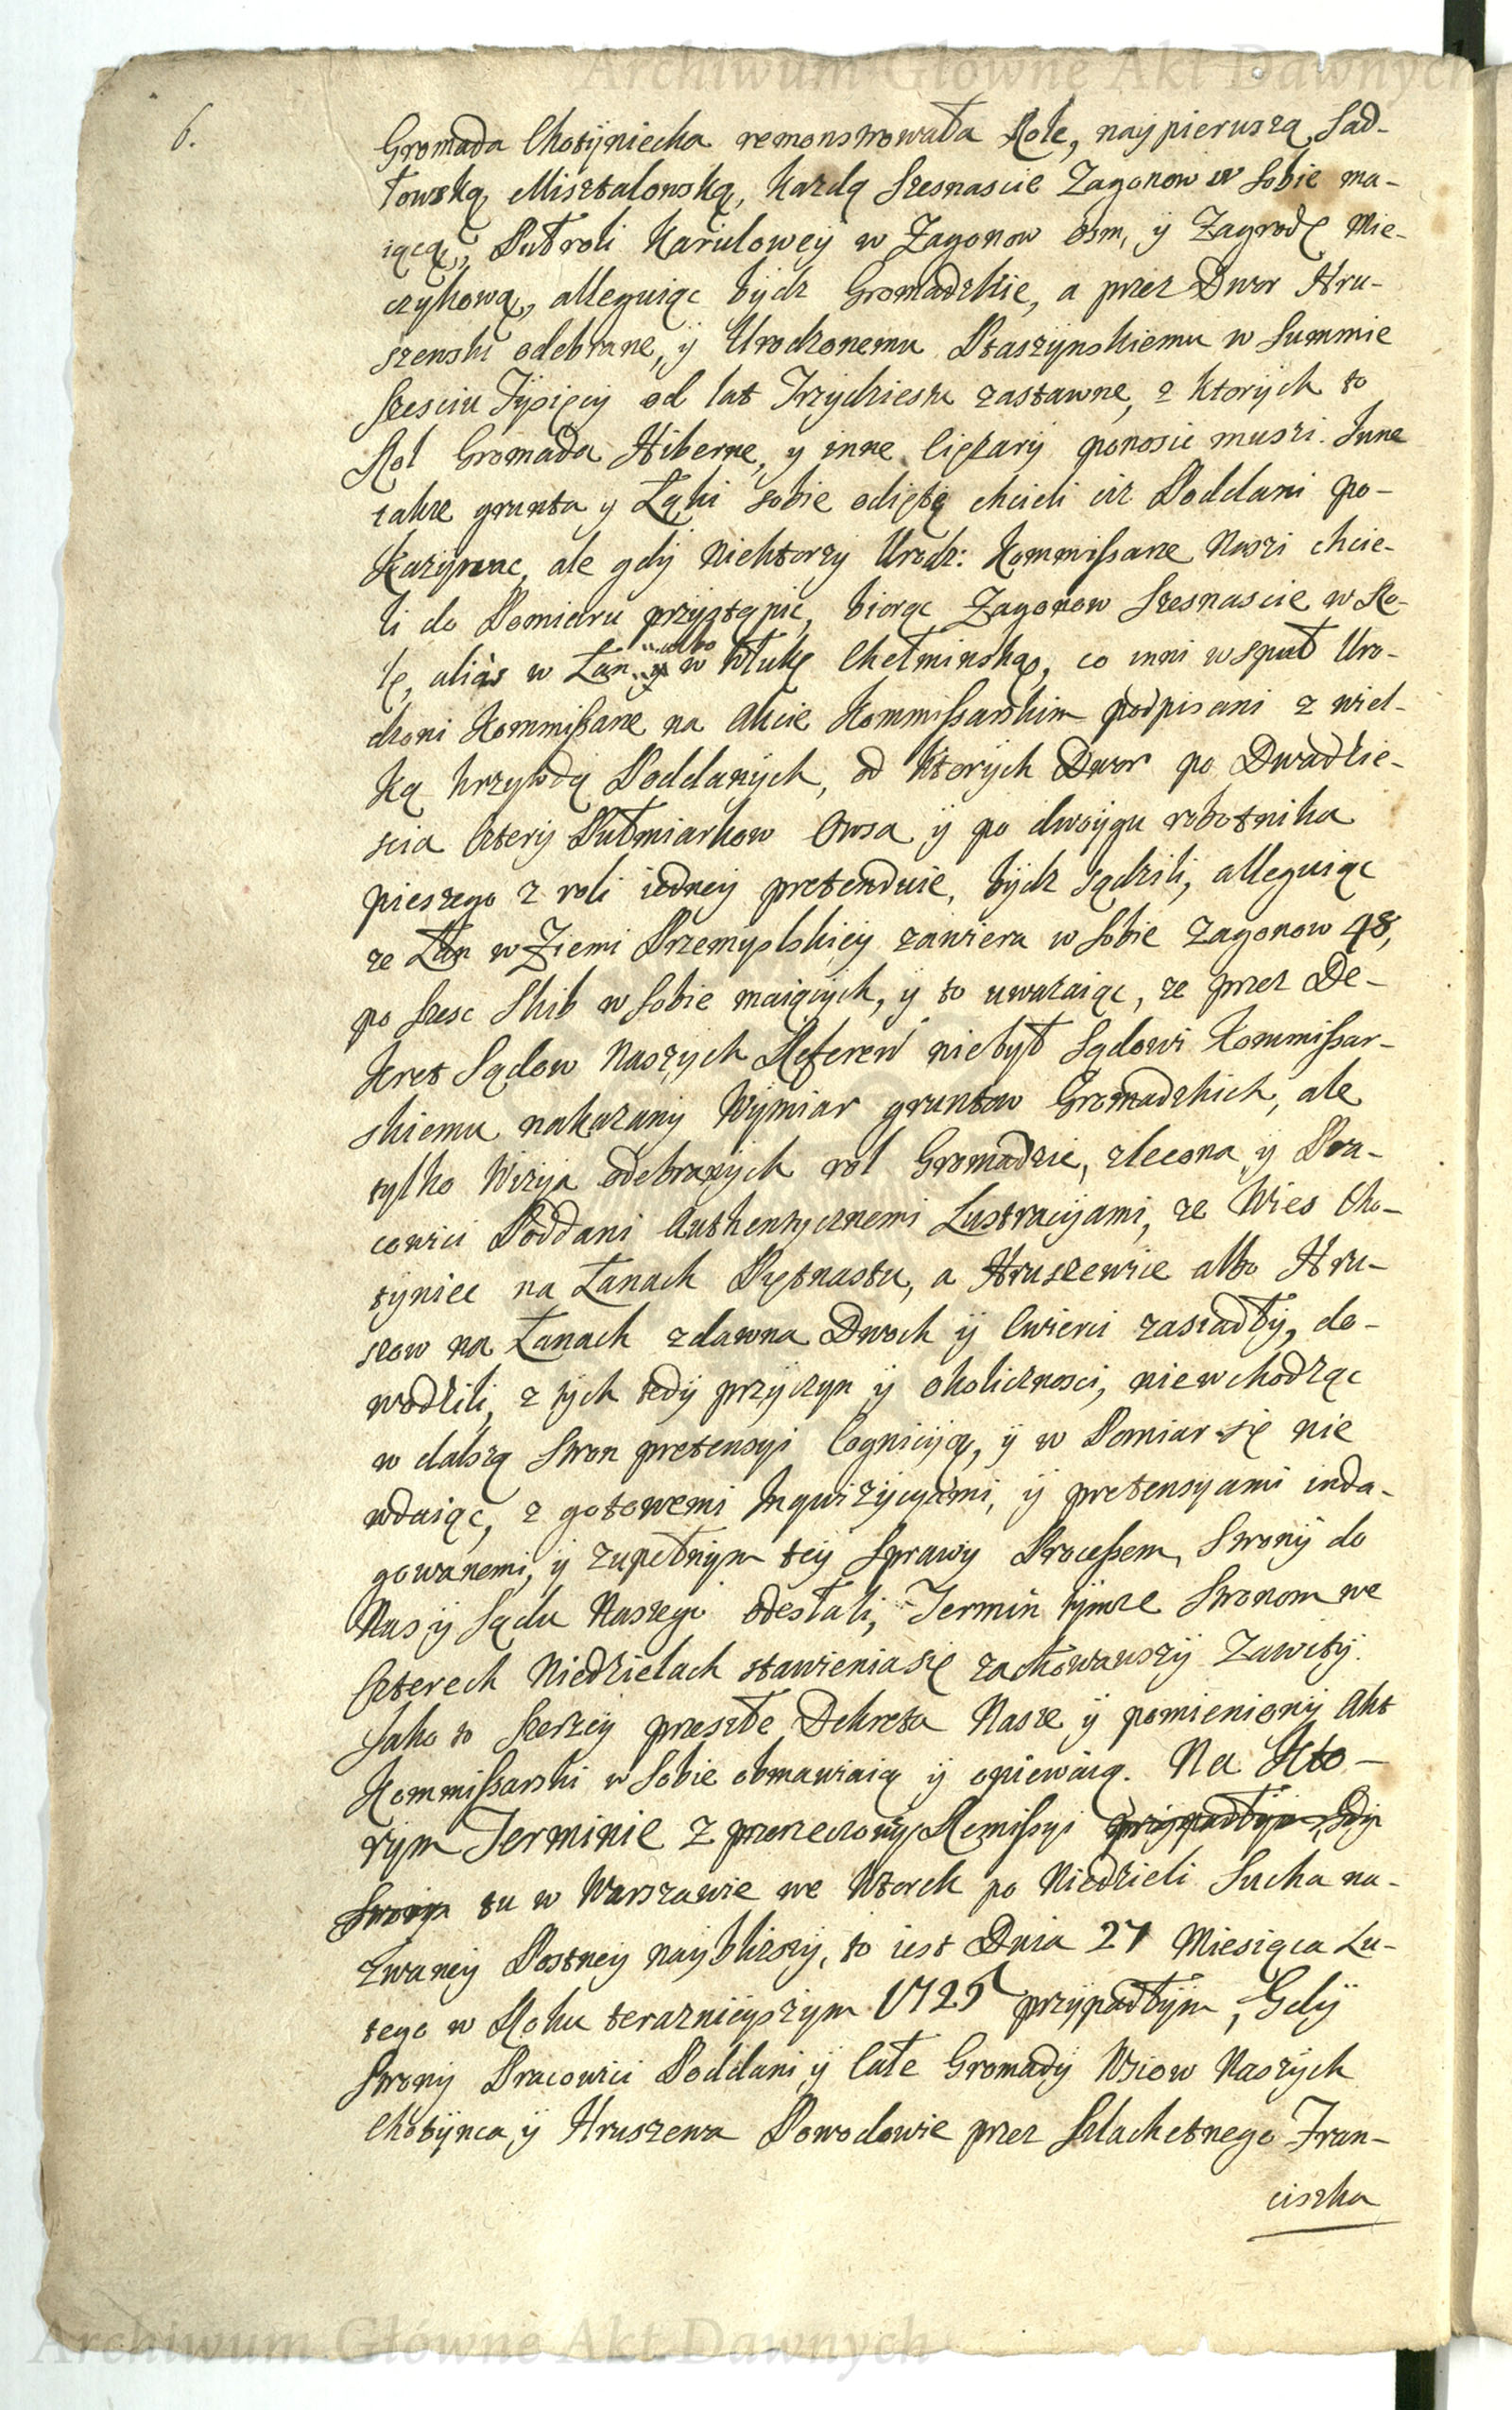 Archiwum Główne Akt Dawnych
6.
Gromada Chotyniecka remonstrowała Role, naypierwszą Sad-
łowską Misztalowską, każdą szesnascie Zagonow w sobie ma-
iącą, Pułroli Karulowey w Zagonow osm, ÿ Zagrodę Mie-
czykową, alleguiąc bydz Gromadzkie, a przez Dwor Hru-
szewski odebrane, ÿ Urodzonemu Ptaszynskiemu w Summie
szesciu Tysięcy od lat Trzydziestu zastawne, z ktorych to
Rol Gromada Hiberne, y inne Ciężary ponosic musi. Inne
także grunta y Łąki sobie odięte chcieli ciz Poddani po-
kazywac, ale gdy niektorzy Urodz: Kommissarze Nasi chcie-
li do Pomiaru przystąpic, biorąc Zagonow szesnascie w Ro-
lę, aliàs w Łan albo w Włukę Chełminską, co inni wspuł Uro-
dzoni Kommissarze na Akcie Kommissarskim podpisani z wiel-
ką krzywdą Poddanych, od ktorych Dwor po Dwadzie-
scia Cztery Pułmiarkow Owsa ÿ po dwoygu robotnika
pieszego z roli iedney pretenduie, bydz sądzili, alleguiąc
ze Łan w Ziemi Przemyslskiey zawiera w sobie Zagonow 48,
po szesc Skib w sobie maiących, ÿ to uwazaiąc, ze przez De-
kret Sądow Naszych Referen niebył Sądowi Kommissar-
skiemu nakazany Wymiar gruntow Gromadzkich, ale
tylko Wizya odebranych rol Gromadzie, zlecona ÿ Pra-
cowici Poddani Authentycznemi Lustracyami, ze Wies Cho-
tyniec na Łanach Piętnastu, a Hruszewice albo Hru-
szow na Łanach zdawna Dwoch ÿ Cwierci zasiadły, do-
wodzili, z tych tedy przyczyn ÿ okolicznosci, niewchodząc
w dalszą Stron pretensyi Cognicyą, ÿ w Pomiar się nie
wdaiąc, z gotowemi Inquizycyami, ÿ pretensyami inda-
gowanemi, ÿ zupełnym tey Sprawy Processem, Strony do
Nas ÿ Sądu Naszego odesłali, Termin tymze Stronom we
Czterech Niedzielach stawienia się zachowawszy Zawity.
Jako to szerzey przeszłe Dekreta Nasze ÿ pomieniony Akt
Kommissarski w sobie obmawiaią ÿ opiewaią. Na Kto-
rym Terminie z przerzeczoney Remissyi przypadłym, Gdy
Strony tu w Warszawie we Wtorek po Niedzieli Sucha na-
zwaney Postney naybliższy, to iest Dnia 27 Miesiąca Lu-
tego w Roku teraznieyszym 1725 przypadłym, Gdÿ
Strony Pracowici Poddani ÿ Całe Gromady Wsiow Naszych
Chotynca ÿ Hruszewa Powodowie przez Szlachetnego Fran-
ciszka
Archiwum Główne Akt Dawnych